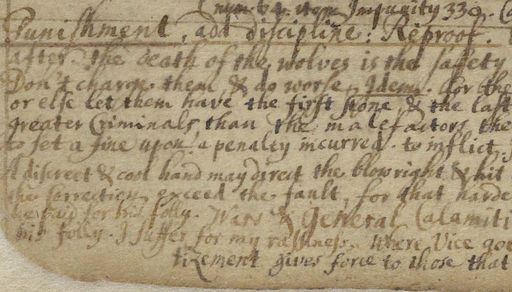 Impunity 330.
Punishment, add discipline: Reproof.
after. the death of the wolves is the safety
Don't charge them, & do worse. Idem. for the
or else let them have the first stone & the last
greater Criminals than the malefactors the
to set a fine upon. a penalty incurred. to inflict
A discreet & cool hand may direct the blow right & hit
the correction exceed the fault, for that
paid for his folly. Wars & General Calamiti
his folly. I suffer for my rashness. Where Vice
tizement gives force to those that